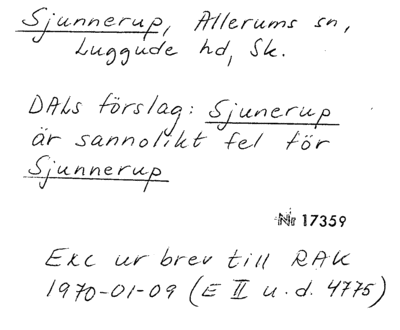 Sjunnerup, Allerums sn,
Luggude hd, Sk.
DALs förslag: Sjunerup
är sannolikt fel för
Sjunnerup
Nr 17359
Exc ur brev till RAK
1970-01-09 (E II u.d. 4775)